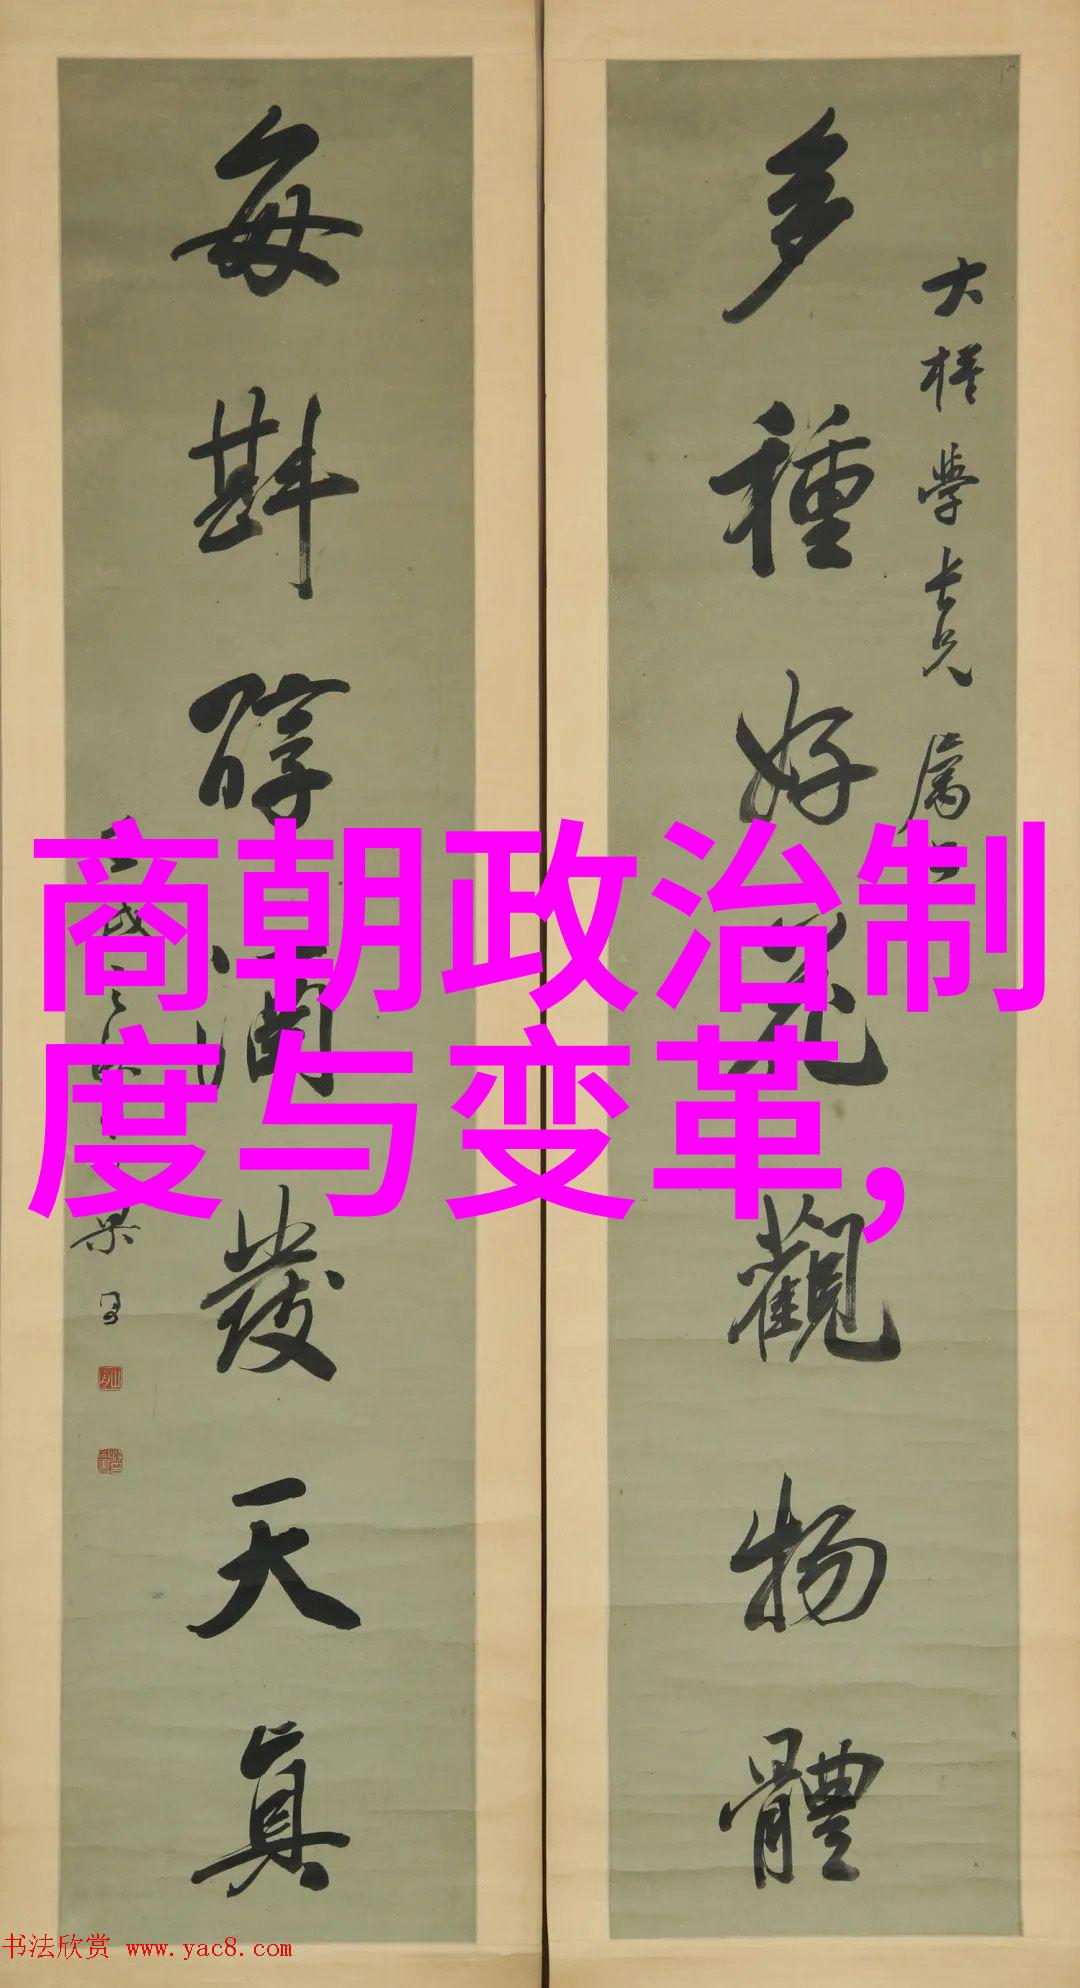 多種好花觀物體
大槎學長兄屬
每斟醇酒發天真
商朝政治制
度与变革,
书法欣赏 www.yac8.com